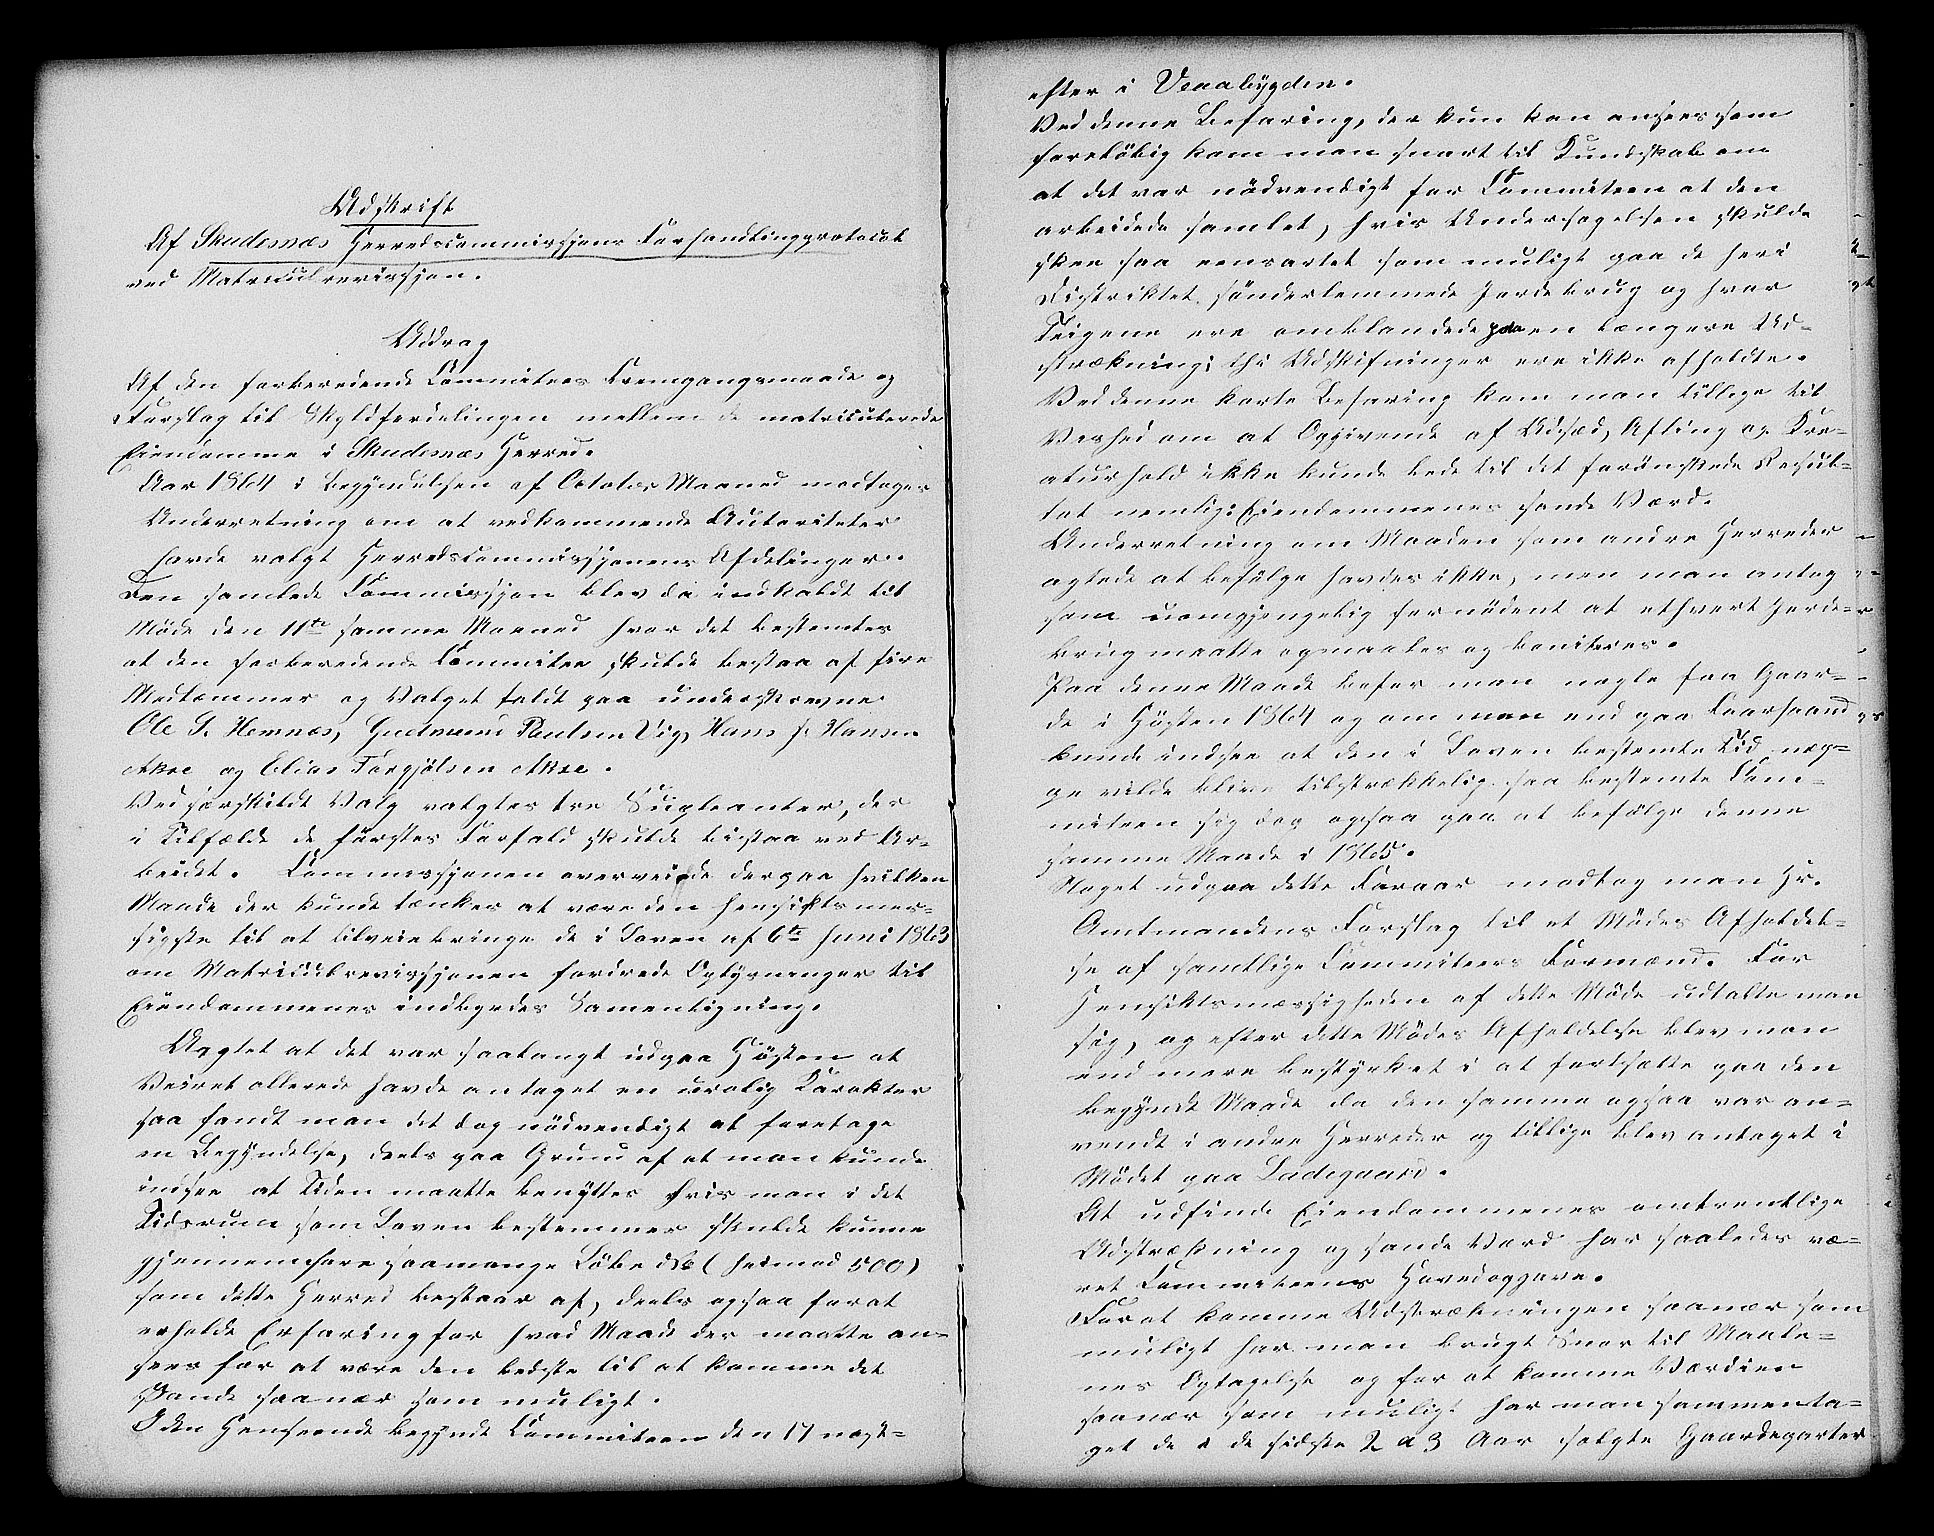 Udskrift
Af Skudesnæs Herredscommissjons Forhandlingsprotocol
ved Matriculrevissjon.
Uddrag
Af den forberedende Committees Fremgangsmaade og
Forslag til Skyldfordelingen mellem de matriculerede
Eiendomme i Skudesnæs Herred.
Aar 1864 i Begyndelsen af October Maaned modtoges
Underretning om at vedkommende Autoriteter
havde valgt Herredscommissjonens Afdelinger.
Den samlede Commissjon blev da indkaldt til
Møde den 11te samme Maaned hvor det bestemtes
at den forberedende Committee skulde bestaa af fire
Medlemmer og Valget faldt paa underskrevne
Ole S. Hemnæs, Gudmund Paulsen Vig, Hans J. Hansen
Akre og Elias Torgjølsen Akre.
Ved særskildt Valg valgtes tre Supleanter, der
i Tilfælde de førstes Forfald skulde bistaa ved Ar-
beidet. Commissjonen overveiede derpaa hvilken
Maade der kunde tænkes at være den hensigtsmæs-
sigste til at tilveiebringe de i Loven af 6te Juni 1863
om Matriculrevissjonen fordrede Oplysninger til
Eiendommenes indbyrdes Samenligning.
Uagtet at det var saalangt udpaa Høsten at
Veiret allerede havde antaget en urolig Karakter
saa fandt man det dog nødvendigt at foretage
en Begyndelse, deels paa Grund af at man kunde
indsee at Tiden maatte benyttes hvis man i det
Tidsrum som Loven bestemmer skulde kunne
gjennemfare saamange Løbe № (henimod 500)
som dette Herred bestaar af, deels ogsaa forat
erholde Erfaring for hvad Maade der maatte an-
sees for at være den bedste til at komme det
Sande saanær som muligt.
I den Henseende begyndte Committeen den 17 næst-
efter i Veaabygden.
Ved denne Befaring, der kun kan ansees som
foreløbig kom man snart til Kundskab om
at det var nødvendigt for Committeen at den
arbeidede samlet, hvis Undersøgelsen skulde
skee saa eensartet som muligt paa de her i
Distriktet sønderlemmede Jordebrug og hvor
Teigene ere omblandede paa en længere Ud-
strækning; thi Udskifninger ere ikke afholdte.
Ved denne korte Befaring kom man tillige til
Vished om at Opgivende af Udsæd, Afling og Kre-
aturhold ikke kunde lede til det forønskede Resul-
tat nemlig: Eiendommenes sande Værd.
Underretning om Maaden som andre Herreder
agtede at befølge havdes ikke, men man antog
som uomgjengelig fornødent at ethvert Jorde-
brug maatte opmaales og boniteres.
Paa denne Maade befor man nogle faa Gaar-
de i Høsten 1864 og om man end paa Foorhaand
kunde indsee at den i Loven bestemte Tid nep-
pe vilde blive tilstrækkelig saa bestemte Com-
miteen sig dog ogsaa paa at befølge denne
samme Maade i 1865.
Noget udpaa dette Foraar modtog man Hr.
Amtmandens Forslag til et Mødes Afholdel-
se af samtlige Committeers Formænd. For
Hensiktsmæssigheden af dette Møde udtalte man
sig, og efter dette Mødes Afholdelse blev man
end mere bestyrket i at fortsætte paa den
begyndte Maade da den samme ogsaa var an-
vendt i andre Herreder og tillige blev antaget i
Mødet paa Ladegaard.
At udfinde Eiendommenes omtrentlige
Udstrækning og sande Værd har saaledes væ-
ret Committeens Hovedopgave.
Forat komme Udstrækningen saanær som
muligt har man brugt Snor til Maale-
nes Optagelse og for at komme Værdien
saanær som muligt har man sammenta-
get de i de sidste 2 a 3 Aar solgte Gaardeparter